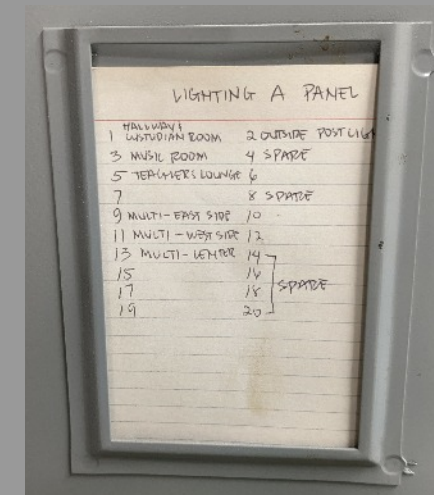 LIGHTING A PANEL
HALLWAY &
1 CUSTUDIAN ROOM 2 OUTSIDE POST LIGH
3 MUSIC ROOM 4 SPARE
5 TEACHERS LOUNGE 6
7 8 SPARE
9 MULTI-EAST SIDE 10
11 MULTI-WEST SIDE 12
13 MULTI-CENTER 14
15 16
17 18 SPARE
19 20